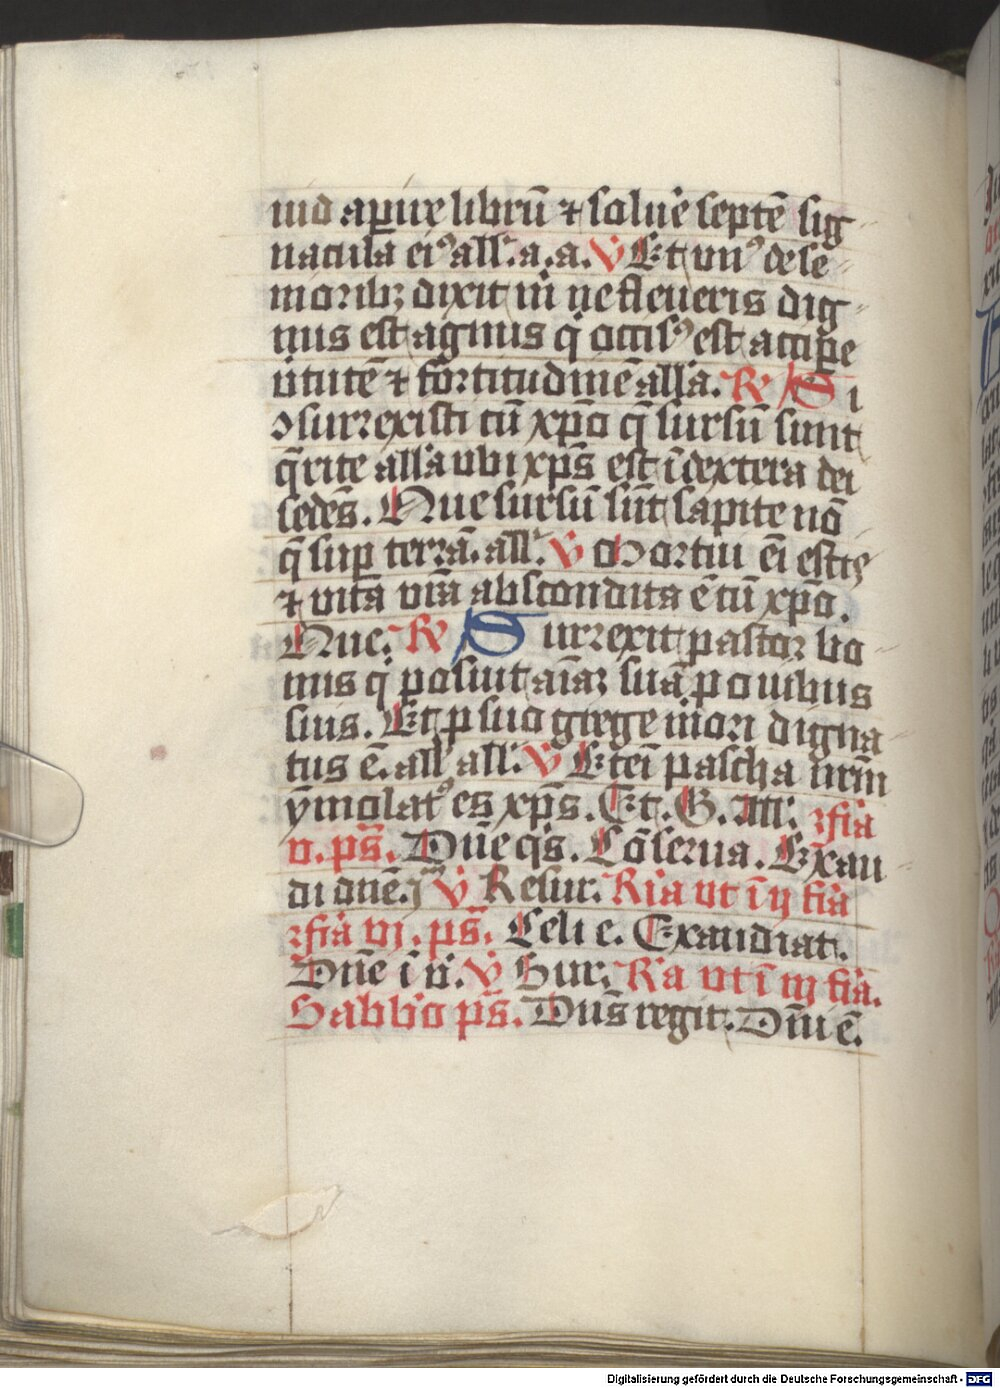 uid aperire librū ⁊ soluē septē sig
nacula eiꝰ all'. a. a. V̓ Et vnꝰ de se
nioribꝫ dixit m̄ ne fleueris dig
nus est agnus q̇ occisꝰ est accipe
ỻtutē ⁊ fortitudinē all'a. R̓ Si
ꝯsurrexisti cū xp̄o q̄ sursū sunt
q̄rite all'a vbi xp̄s est ī dextera dei
sedēs. Que sursū sūt sapite nō
q̄ suꝑ terrā. all'. V̓ Mortui eī estis
⁊ vita vr̄a abscondita ē cū xp̄o.
Que. R̓ Surrexit pastor bo
nus q̇ posuit aīaꝫ suā ꝑ ouibus
suis. Et ꝓ suo grege mori digna
tus ē. all' all'. V̓ Etēi pascha nr̄m
ymolatꝰ es xp̄s. Et. G.
v. ps̄. Dn̄e q̇s. Cōserua. Exau
di dn̄e. V̓ Resur. R'ia vt ī ij fīa
fīa vj. ps̄. Celi e. Exaudiat.
Dn̄e ī v̓. V̓ Sur. R'a vt ī iij fīa.
Sabb'o ps̄. Dn̄s regit. Dn̄i ē.
Digitalisierung gefördert durch die Deutsche Forschungsgemeinschaft - DFG